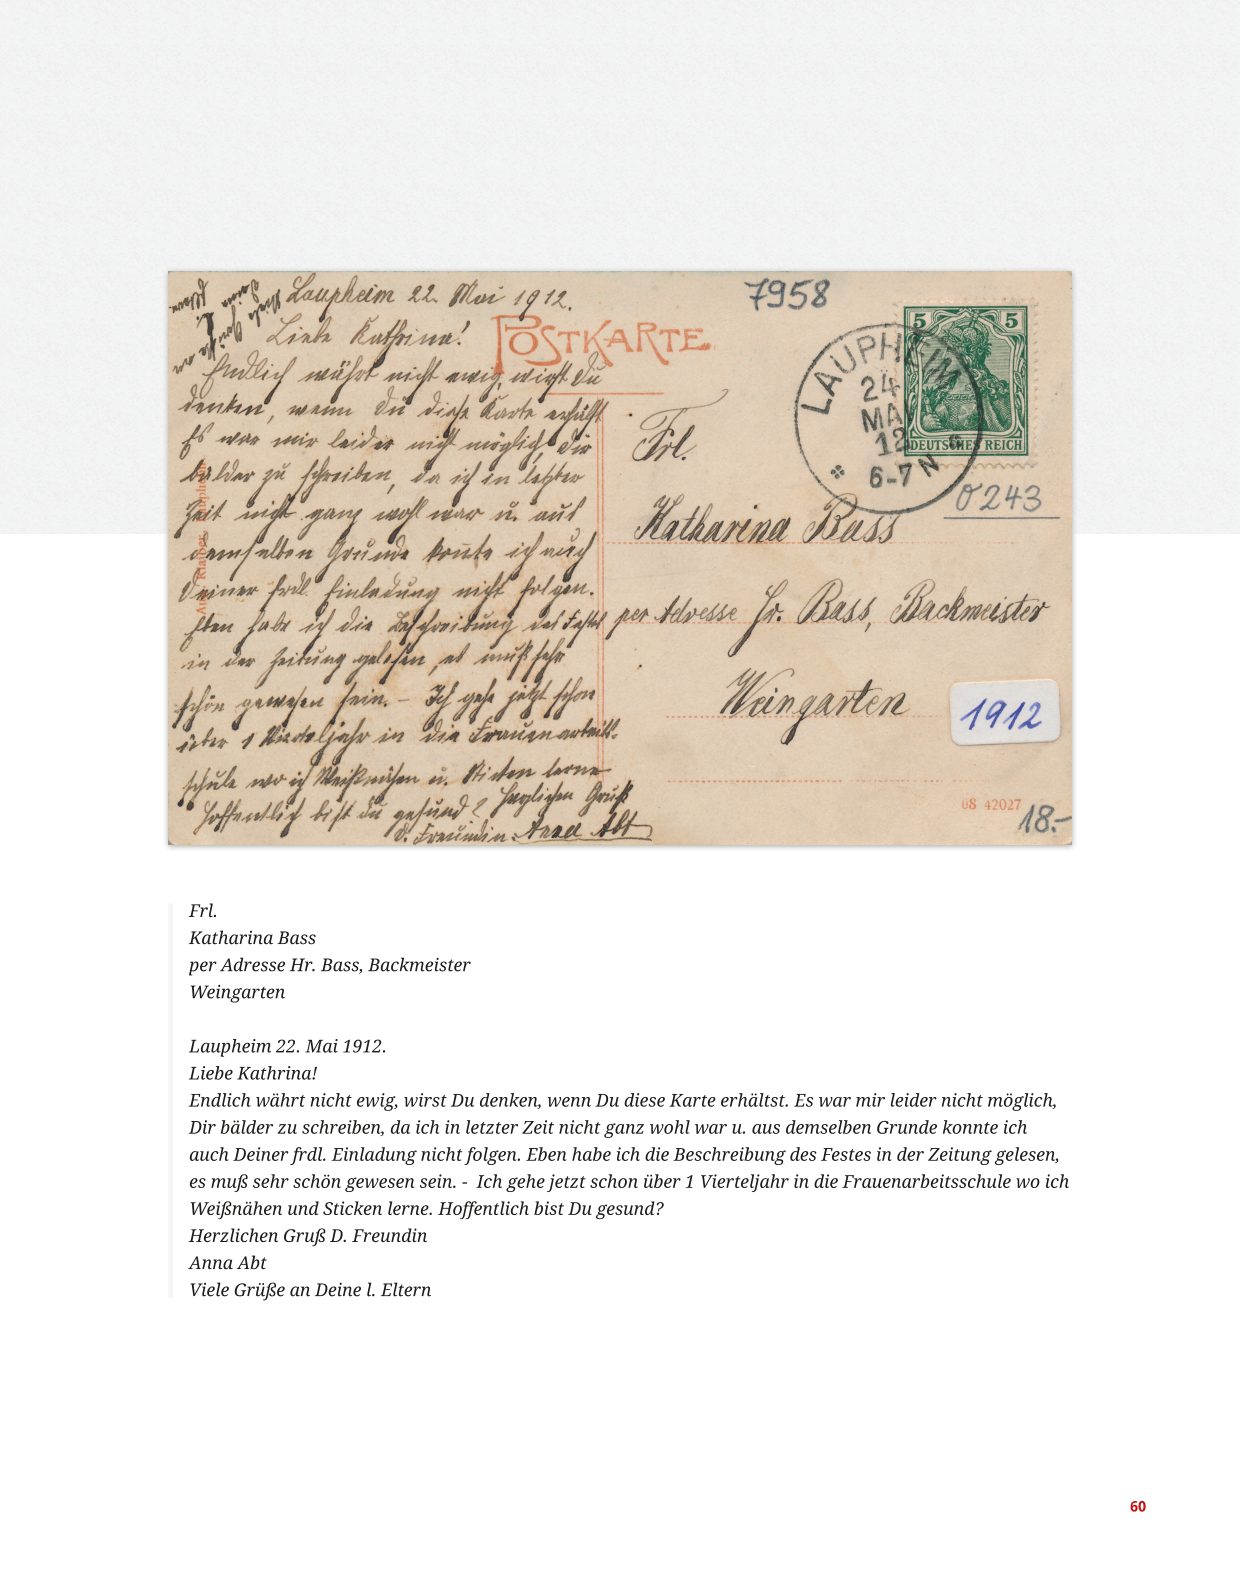 Laupheim 22. Mai 1912.
Liebe Kathrina!
Endlich währt nicht ewig, wirst Du
denken, wenn Du diese Karte erhälst
Es war mir leider nicht möglich, Dir
bälder zu schreiben, da ich in letzter
Zeit nicht ganz wohl war u. aus
demselben Grunde konnte ich auch
Deiner frdl. Einladung nicht folgen.
Eben habe ich die Beschreibung des Festes
in der Zeitung gelesen, es muß sehr
schön gewesen sein. – Ich gehe jetzt schon
über 1 Vierteljahr in die Frauenarbeits-
schule wo ich Weißnähen u. Sticken lerne
Hoffentlich bist Du gesund? Herzlichen Gruß
D. Freundin Anna Abt
Viele Grüße an
Deine l.
Eltern
POSTKARTE
7958
5 5
DEUTSCHES REICH
LAUPHEIM
24
MA
12
6-7 N
0243
Frl.
Katharina Bass
per Adresse Hr. Bass, Backmeister
Weingarten
1912
08 42027
18.-
Frl.
Katharina Bass
per Adresse Hr. Bass, Backmeister
Weingarten
Laupheim 22. Mai 1912.
Liebe Kathrina!
Endlich währt nicht ewig, wirst Du denken, wenn Du diese Karte erhältst. Es war mir leider nicht möglich,
Dir bälder zu schreiben, da ich in letzter Zeit nicht ganz wohl war u. aus demselben Grunde konnte ich
auch Deiner frdl. Einladung nicht folgen. Eben habe ich die Beschreibung des Festes in der Zeitung gelesen,
es muß sehr schön gewesen sein. - Ich gehe jetzt schon über 1 Vierteljahr in die Frauenarbeitsschule wo ich
Weißnähen und Sticken lerne. Hoffentlich bist Du gesund?
Herzlichen Gruß D. Freundin
Anna Abt
Viele Grüße an Deine l. Eltern
60